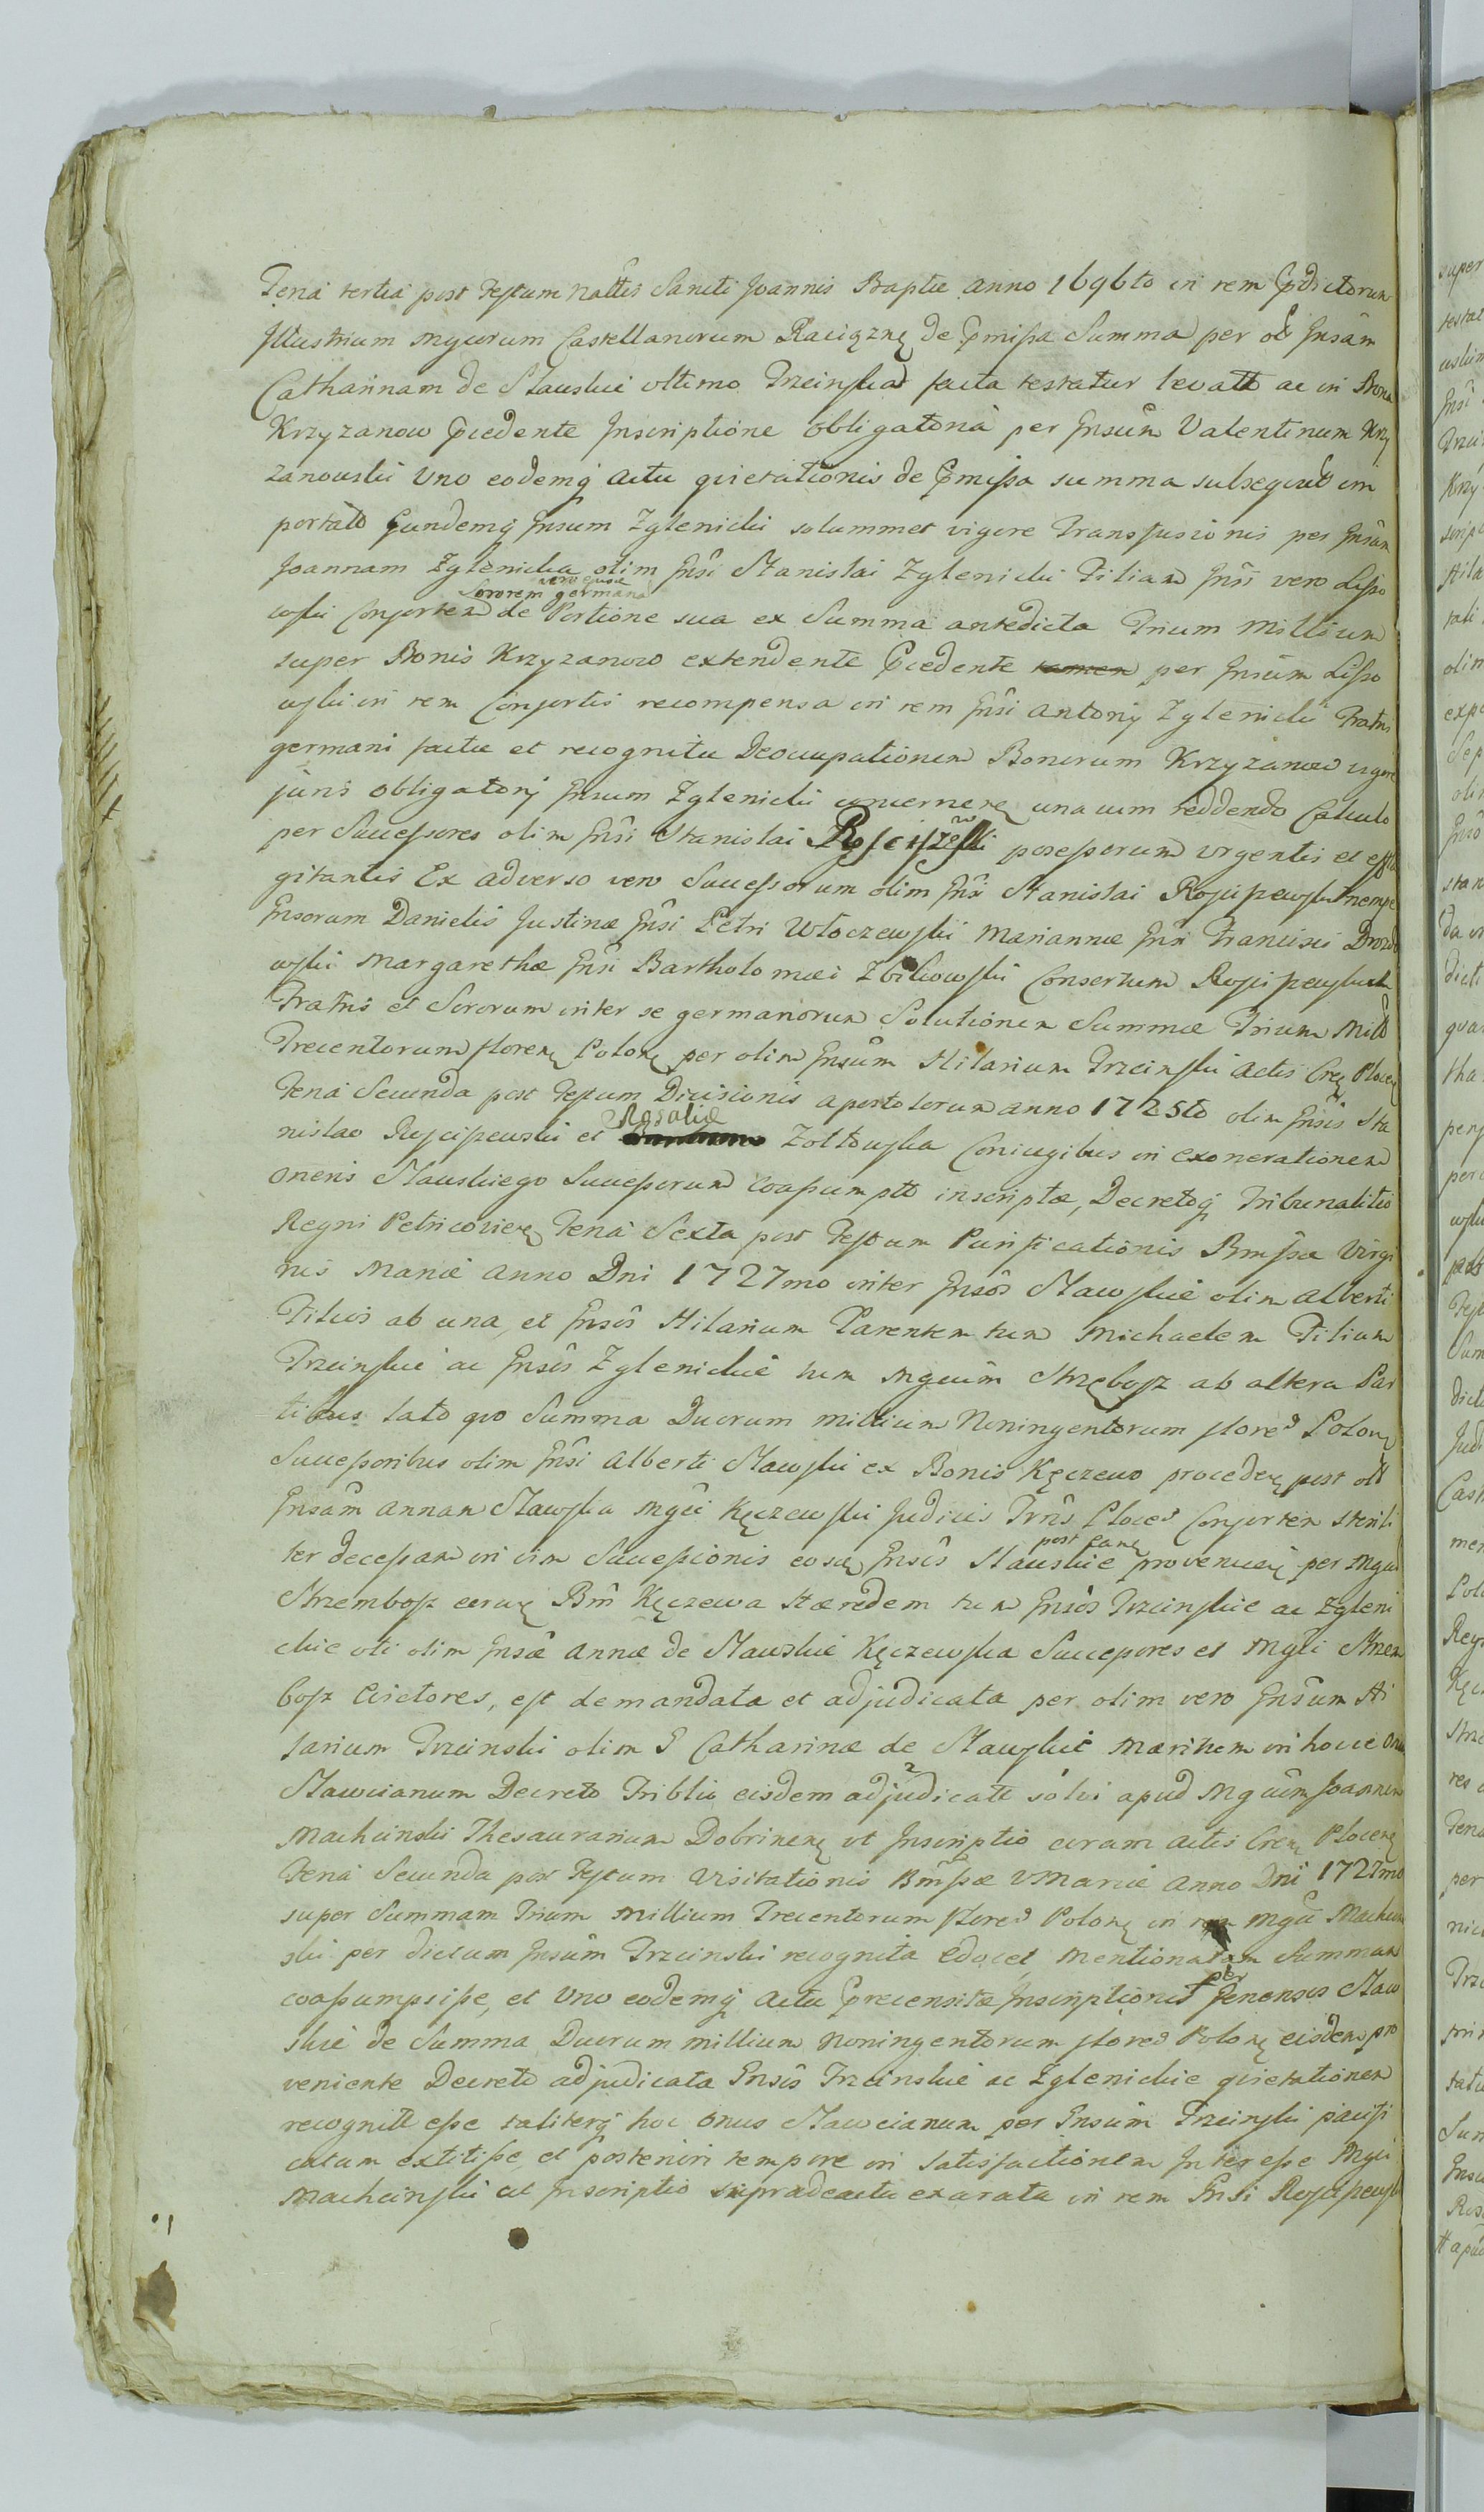 Feria tertia post Festum nattis Sancti Joannis Baptæ anno 1696to in rem Prædictorum
Illustrium Mgcorum Castellanorum Raciązņ de Præmissa Summa per ol Gnsam
Catharinam de Slawskie ultimo Trzcinska facta testatur levatt ac in Bona
Krzyzanow Præcedente Inscriptione obligatoria per Gnsum Valentinum Krzy
zanowski Uno eodemq actu quietationis de Præmissa summa subsequo im
portato Eundemq Gnsum Zglenicki solummet vigore Transfusionis per Gnsam
Joannam Zglenicka olim Gnsi Stanislai Zglenicki Filiam Gnsi vero Lisso
wski Consortem Sororem vero suæ germana de Portione sua ex Summa antedicta Trium Millium
super Bonis Krzyzanow extendente Præcedente tamen per Gnsum Lisso
wski in rem Consortis recompensa in rem Gnsi Antonij Zglenicki Fratris
germani factæ et recognitæ Deoccupationem Bonorum Krzyzanow vigore
juris obligatorij Gnsum Zglenicki concernerę una cum reddendo Calculo
per Successores olim Gnsi Stanislai Rościszewski possessorum urgentis et effla
gitantis Ex adverso vero Successorum olim Gnsi Stanislai Rościszewski nempe
Gnsorum Danielis Justinæ Gnsi Petri Włoczewski Mariannæ Gnsi Francisci Drozdo
wski Margarethæ Gnsi Bartholomæi Zbikowski Consortum Rosciszewskich
Fratris et Sororum inter se germanorum Solutionem Summæ Trium Mill
Trecentorum florenę Polonę per olim Gnsum Hilarium Trzcinski Actis Creę Plocenę
Feria Secunda post Festum Divisionis apostolorum anno 1725to olim Gnsis Sta
nislao Rościszewski et Rosaliæ Zołtowska Coniugibus in exonerationem
oneris Slawskiego Successorum coassumptt inscriptæ, Decretoq Tribunalitio
Regni Petricovienę Feria Sexta post Festum Purificationis Bmssæ Virgi
nis Mariæ Anno Dni 1727mo inter Gnsos Slawskie olim Alberti
Filios ab una, et Gnsos Hilarium Parentem tum Michaelem Filium
Trzcinskie ac Gnsos Zglenickie tum Mgcum Strzębosz ab altera Par
tibus lato quo Summa Duorum Millium Noningentorum flore Polonę
Successoribus olim Gnsi Alberti Slawski ex Bonis Kęczewo procedenę post oll
Gnsam Annam Slawska Mgci Kęczewski Judicis Trris Ploce Consortem sterili
ter decessam in vim Successionis eosę Gnsos Slawskie post eanę provenienę per Mgcu
Strzembosz earuę Bnm Kęczewa Hæredem tum Gnsos Trzcinskie ac Zgleni
ckie uti olim Gnsæ Annæ de Slawskie Kęczewska Successores et Mgci Strzem
bosz Evictores, est demandata et adjudicata per olim vero Gnsum Hi
larium Trzcinski olim G Catharinæ de Slawskie Maritum in hocce Onus
Slawcianum Decreto Triblio eisdem adjudicatt solvi apud Mgcum Joannem
Machcinski Thesaurarium Dobrinenę ut Inscriptio coram Actis Crenę Plocenę
Feria Secunda post Festum Visitationis Bmssæ V Mariæ Anno Dni 1727mo
super Summam Trium Millium Trecentorum flore Polonę in rem Mgci Machcin
ski per dictum Gnsum Trzcinski recognita Edocet Mentionatam Summam
coassumpsisse, et Uno eodemq Actu Præcensitæ Inscriptionis per Generosos Slaw
skie de Summa Duorum millium Noningentorum flore Polonę eisdem pro
veniente Decreto adjudicata Gnsos Trzcinskie ac Zglenickie quietationem
recognitt esse taliterq hoc Onus Slawcianum per Gnsum Trzcinski pacifi
catum extitisse, et posteriori tempore in satisfactionem Interesse Mgci
Machcinski ut Inscriptio supradeacta exarata in rem Gnsi Rościszewski